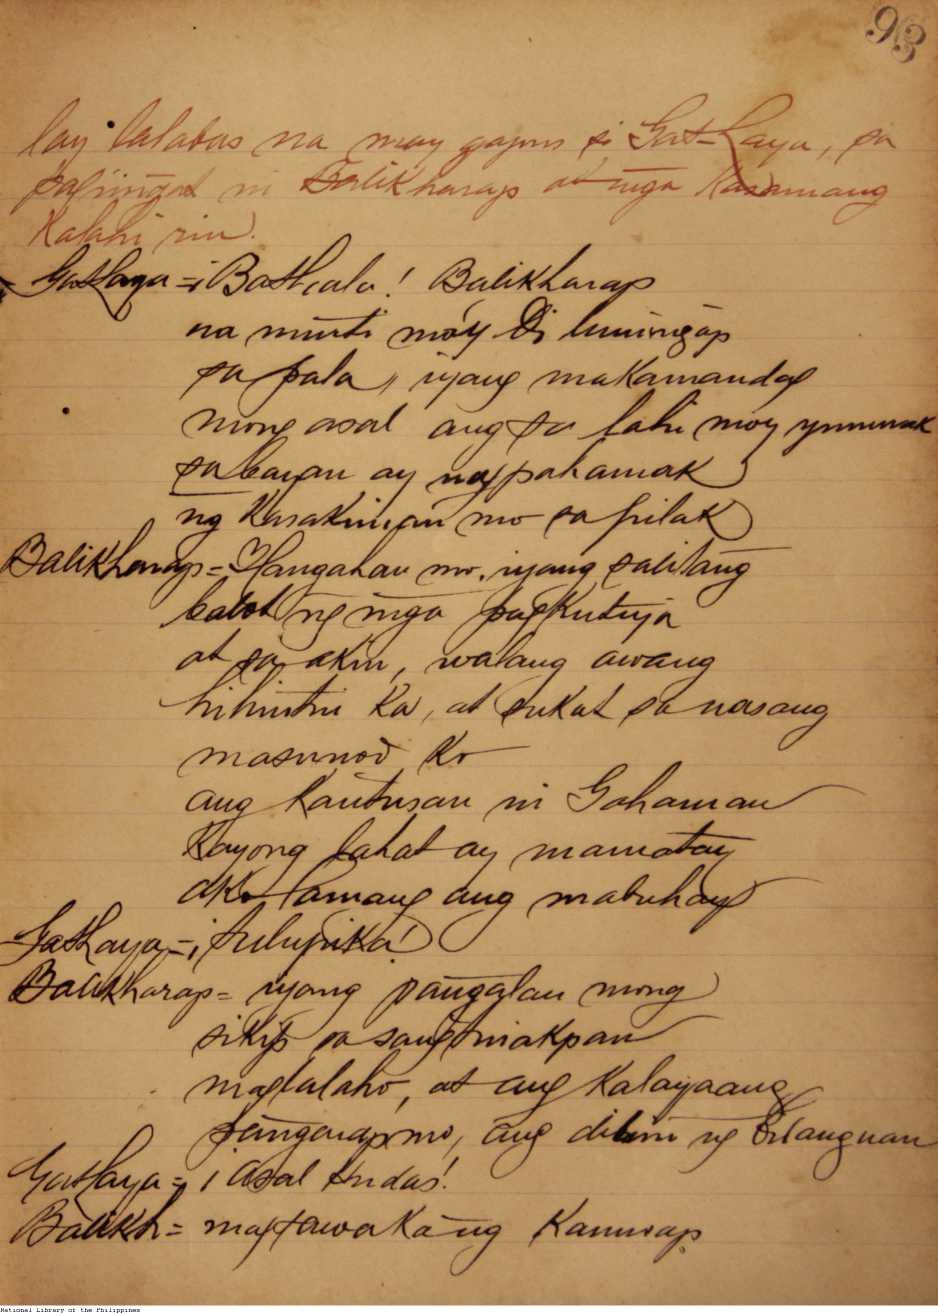 93
lay lalabas na may gapus si Gat-Laya, sa
paliingat ni Balikharap at mga Kasamang
Kalahi rin.
Gatlaya =¡Bathala! Balikharap
na munti mo'y Di lumingap
sa pala, iyang makamandag
mong asal ang sa lahi moy yumurak
sa bayan ay nagpahamak
ng Kasakiman mo sa pilak
Balikharap= Hangahan mo, iyang salitang
balot ng mga pagkutya
at sa akin, walang awang
hihintin Ka, at sukat sa nasang
masunod Ko
ang Kautusan ni Gahaman
Kayong lahat ay mamatay
ako lamang ang mabuhay
GatLaya =¡
Balikharap= iyang pangalan mong
sikip sa sangsinakpan
maglalaho, at ang Kalayaang
pangarap mo, ang dilim ng bilangguan
GatLaya =¡ asal Hudas!
Balikh= magtawa Ka ng Kanwrap
National Library of the Philippines